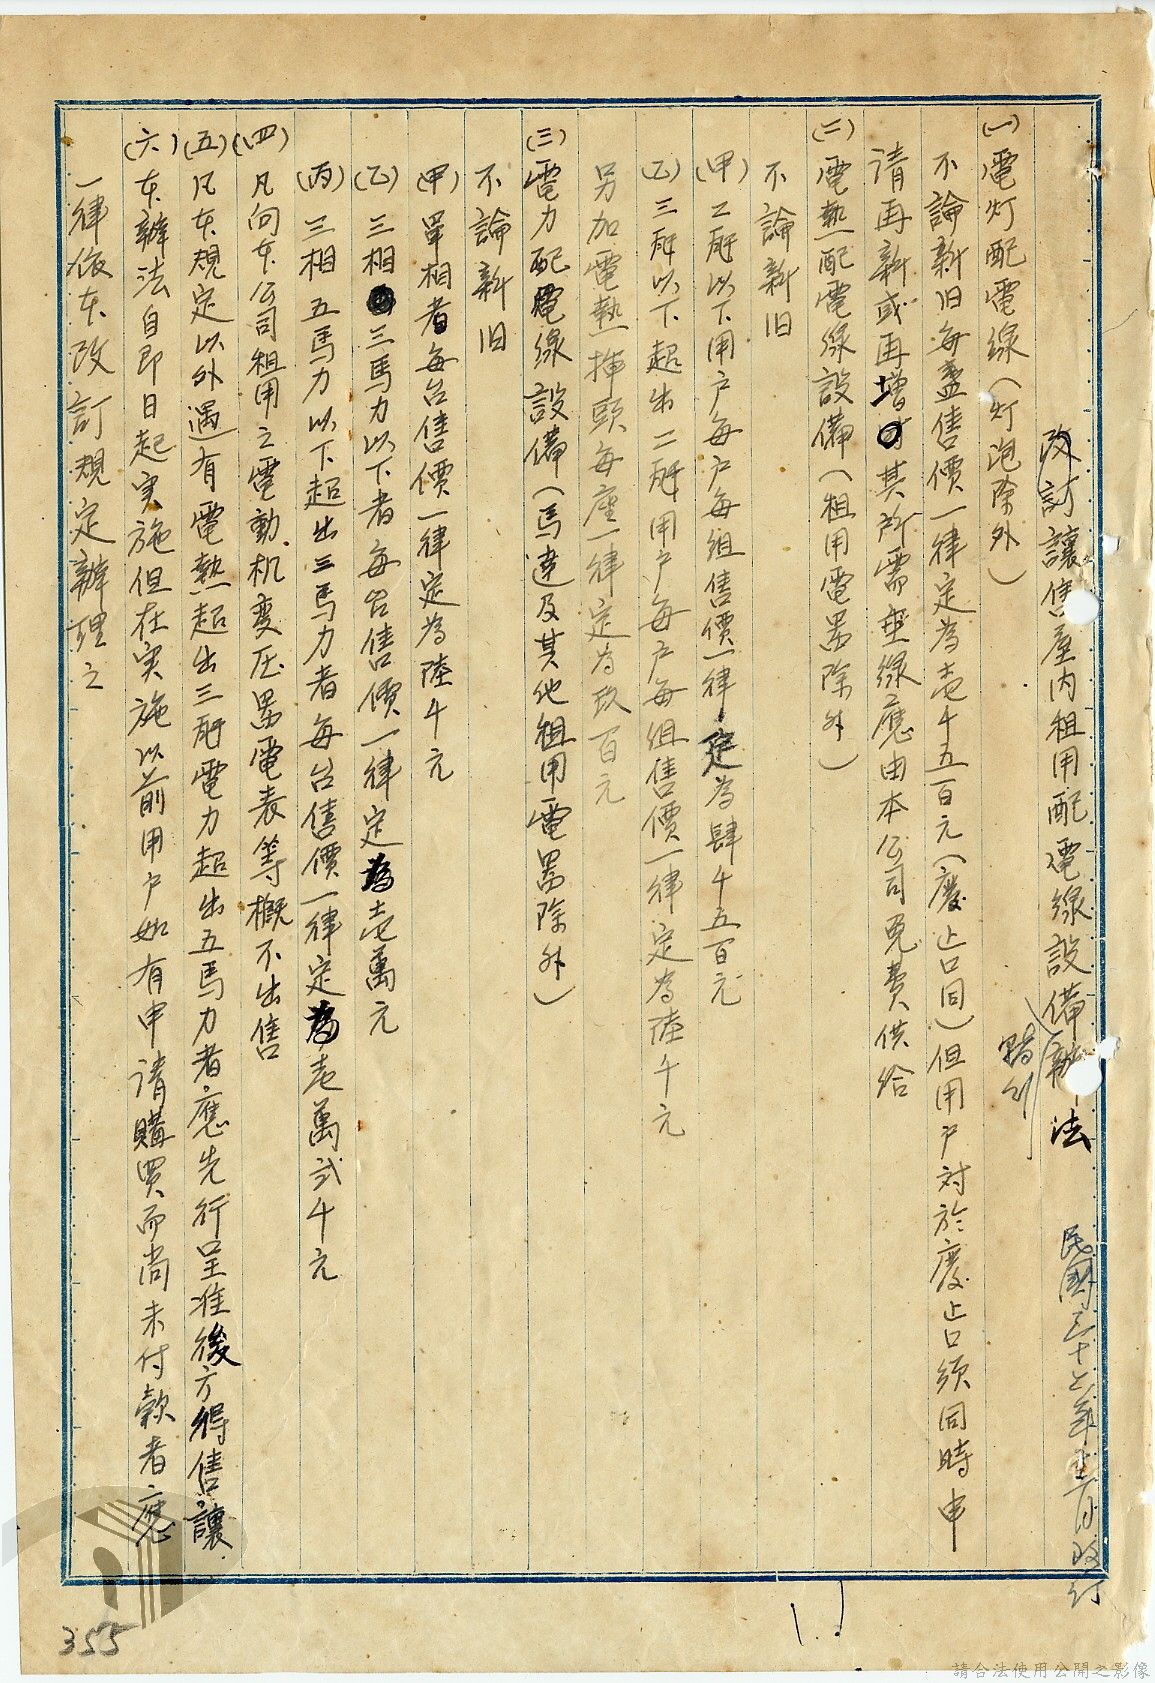 改訂讓售屋内租用配電線設備辦法
民國三十七年
改訂
(一)電灯配電線(灯泡除外)
不論新旧每盞售價一律定為壱千五百元(廢止口同)但用户对於廢止口須同時申
請再新或再增其所需電線應由本公司免費供給
(二)電熱配電線設備(租用電器除外)
不論新旧
(甲)二瓩以下用户每户每組售價一律定為肆千五百元
(乙)三瓩以下超出二瓩用户每户每組售價一律定為陸千元
另加電熱挿頭每座一律定為玖百元
(三)電力配電線設備(馬達及其他租用電器除外)
不論新旧
(甲)單相者每台售價一律定為陸千元
(乙)三相三馬力以下者每台售價一律定為壱萬元
(丙)三相五馬力以下超出三馬力者每台售價一律定為壱萬弍千元
(四)凡向本公司租用之電動机变圧器電表等概不出售
(五)凡本規定以外遇有電熱超出三瓩電力超出五馬力者應先行呈准後方得售讓
(六)本辦法自即日起实施但在实施以前用户如有申請購買而尚未付款者應
一律依本改訂規定辦理之
355
請合法使用公開之影像